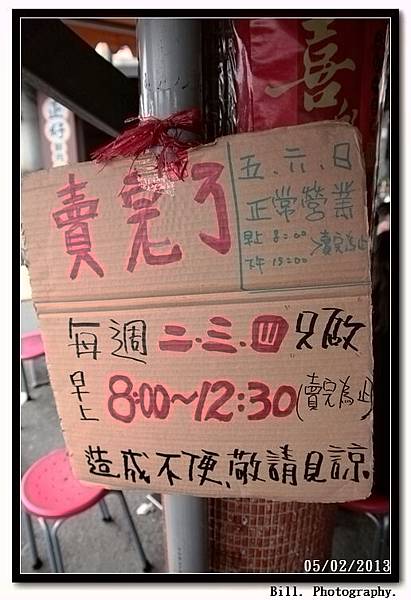 喜
正好
賣完了
五.六.日
正常營業
早上 8:00
下午 15:00
>賣完為止
每週二.三.四只做
早上 8:00~12:30(賣完為止)
造成不便,敬請見諒
05/02/2013
Bill. Photography.